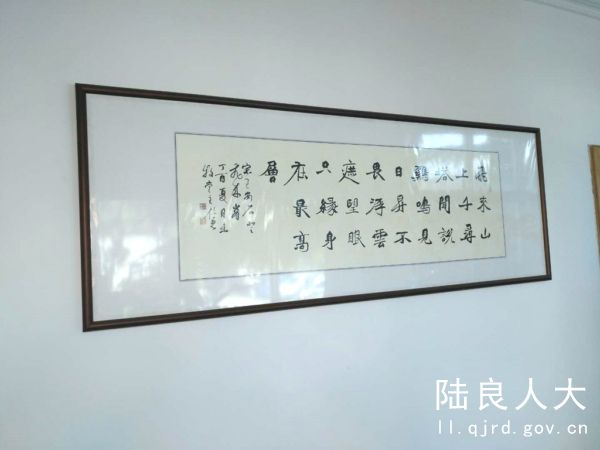 飛来山
上千尋
塔聞說
鷄鳴見
日昇不
畏浮雲
遮望眼
只緣身
在最高
層
宋王安石
飛来峯
丁酉夏月
陆良人大
ll.qjrd.gov.cn